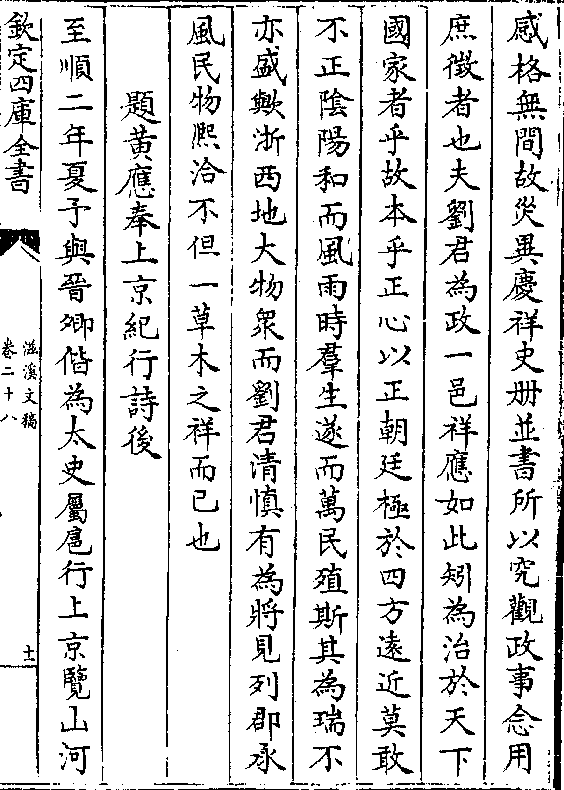 感格無間故災異慶祥史册並書所以究觀政事念用
庶徴者也夫劉君為政一邑祥應如此矧為治於天下
國家者乎故本乎正心以正朝廷極於四方逺近莫敢
不正陰陽和而風雨時羣生遂而萬民殖斯其為瑞不
亦盛歟浙西地大物衆而劉君清慎有為將見列郡承
風民物熈洽不但一草木之祥而已也
題黃應奉上京紀行詩後
至順二年夏予與晉卿偕為太史屬扈行上京覽山河
欽定四庫全書
滋溪文稿
卷二十八
十一